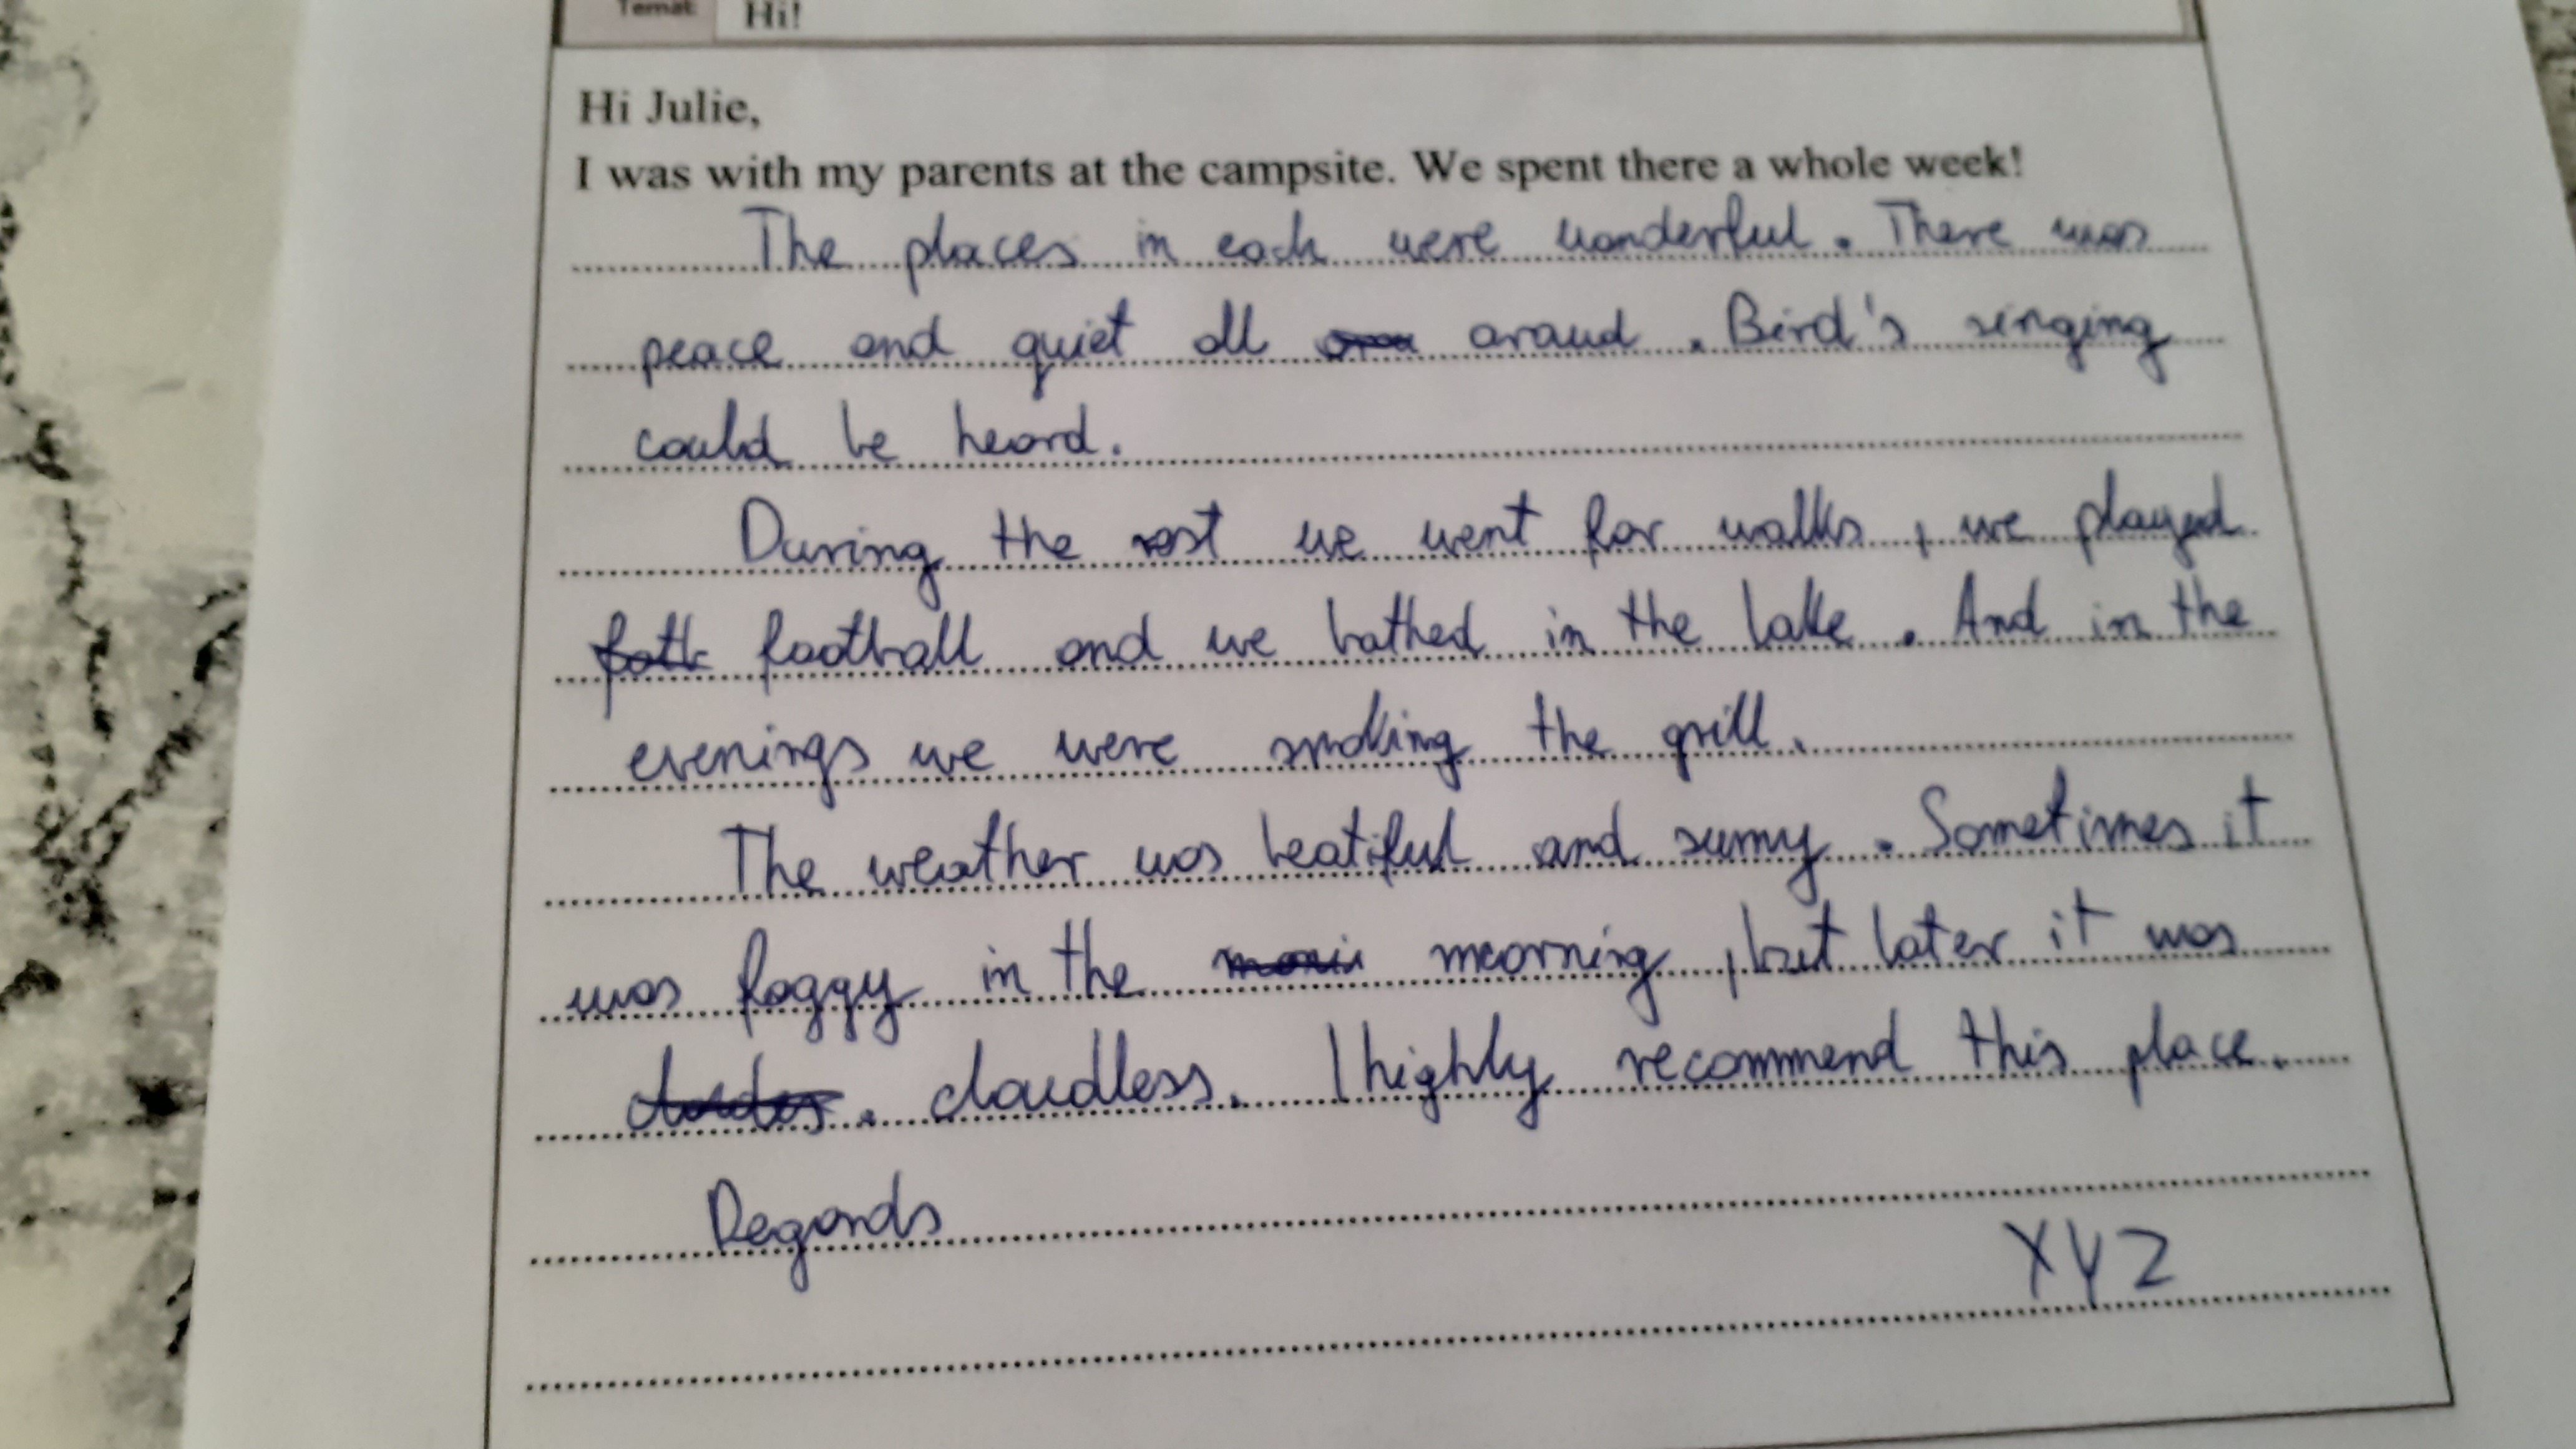 Temat: Hi!
Hi Julie,
I was with my parents at the campsite. We spent there a whole week!
The places in each were wonderful. There was
peace and quiet all araud. Bird's singing
could be heard.
During the rest we went for walks, we played
football and we bathed in the lake. And in the
evenings we were smoking the grill.
The weather was beatiful and sunny. Sometimes it
was foggy in the meorning, but later it was
cloudless. I highly recommend this place.
Regards
XYZ